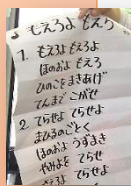 もえろよ もえろ
1. もえろよ もえろよ
ほのおよ もえろ
ひのこを まきあげ
てんまで こがせ
2. てらせよ てらせよ
まひるのごとく
ほのおよ うずまき
やみよを てらせ
てらせよ